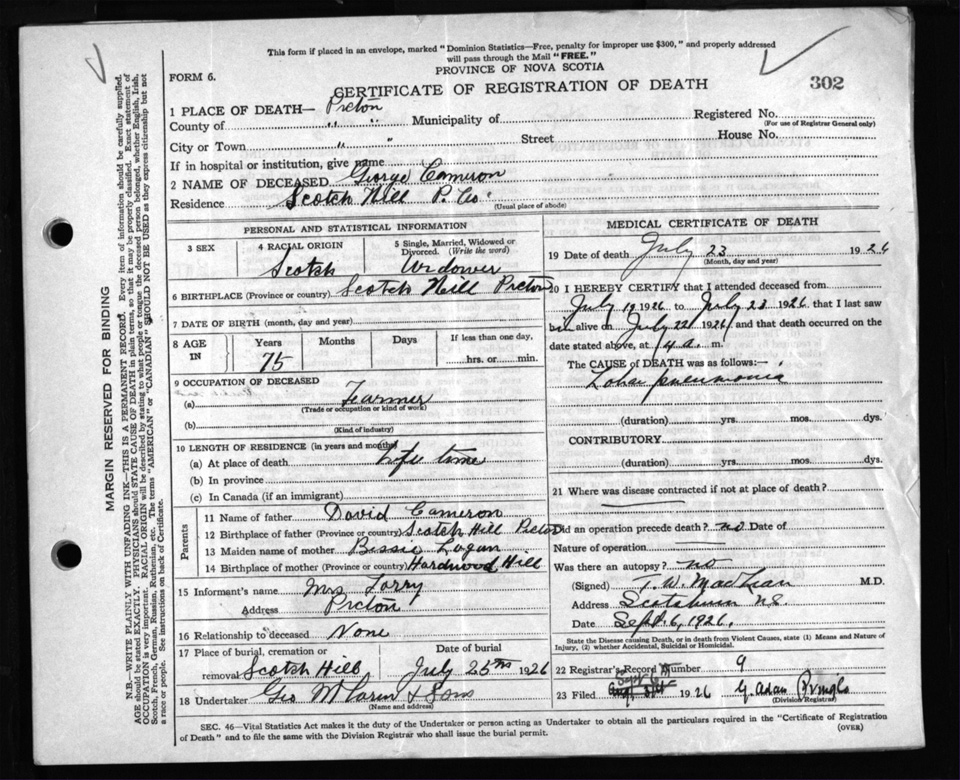 This form if placed in an envelope, marked "Dominion Statistics—Free, penalty for improper use $300," and properly addressed
will pass through the Mail "FREE."
PROVINCE OF NOVA SCOTIA
FORM 6.
CERTIFICATE OF REGISTRATION OF DEATH
302
1 PLACE OF DEATH— Pictou
County of " " Municipality of Registered No.
(For use of Registrar General only)
City or Town " " Street House No.
If in hospital or institution, give name
2 NAME OF DECEASED George Cameron
Residence Scotch Hill P. Co
(Usual place of abode)
PERSONAL AND STATISTICAL INFORMATION
3 SEX 4 RACIAL ORIGIN 5 Single, Married, Widowed or Divorced. (Write the word)
Scotch Widower
6 BIRTHPLACE (Province or country) Scotch Hill Pictou
7 DATE OF BIRTH (month, day and year)
8 AGE IN Years Months Days If less than one day,
75 hrs. or min.
9 OCCUPATION OF DECEASED
(a) Fearmer
(Trade or occupation or kind of work)
(b)
(Kind of industry)
10 LENGTH OF RESIDENCE (in years and months)
(a) At place of death life time
(b) In province
(c) In Canada (if an immigrant)
Parents
11 Name of father David Cameron
12 Birthplace of father (Province or country) Scotch Hill Pictou
13 Maiden name of mother Bessie Logan
14 Birthplace of mother (Province or country) Hardwood Hill
15 Informant's name Mrs Torry
Address Pictou
16 Relationship to deceased None
17 Place of burial, cremation or removal Scotch Hill
Date of burial July 25th 1926
18 Undertaker Geo McLaren & Sons
(Name and address)
MEDICAL CERTIFICATE OF DEATH
19 Date of death July 23 1926
(Month, day and year)
20 I HEREBY CERTIFY that I attended deceased from
July 19 1926 to July 23 1926 that I last saw
him alive on July 22 1926 and that death occurred on the
date stated above, at 4 a. m.
The CAUSE of DEATH was as follows:—
Lobar pneumonia
(duration) yrs. mos. dys.
CONTRIBUTORY
(duration) yrs. mos. dys.
21 Where was disease contracted if not at place of death?
Did an operation precede death? no Date of
Nature of operation
Was there an autopsy? no
(Signed) T. W. MacLean M.D.
Address Scotsburn N.S.
Date Sept. 6, 1926.
State the Disease causing Death, or in death from Violent Causes, state (1) Means and Nature of
Injury, (2) whether Accidental, Suicidal or Homicidal.
22 Registrar's Record Number 9
23 Filed Sept 1926 G. Adam Pringle
(Division Registrar)
SEC. 46—Vital Statistics Act makes it the duty of the Undertaker or person acting as Undertaker to obtain all the particulars required in the "Certificate of Registration
of Death" and to file the same with the Division Registrar who shall issue the burial permit.
(OVER)
MARGIN RESERVED FOR BINDING
N.B.—WRITE PLAINLY WITH UNFADING INK—THIS IS A PERMANENT RECORD. Every item of information should be carefully supplied.
AGE should be stated EXACTLY. PHYSICIANS should STATE CAUSE OF DEATH in plain terms, so that it may be properly classified. Exact statement of
OCCUPATION is very important. RACIAL ORIGIN will be described by stating to what people or tongue the deceased person belonged, whether English, Irish,
Scotch, French, German, Russian, Ruthenian, etc. The terms "AMERICAN" or "CANADIAN" SHOULD NOT BE USED as they express citizenship but not
a race or people. See instructions on back of Certificate.